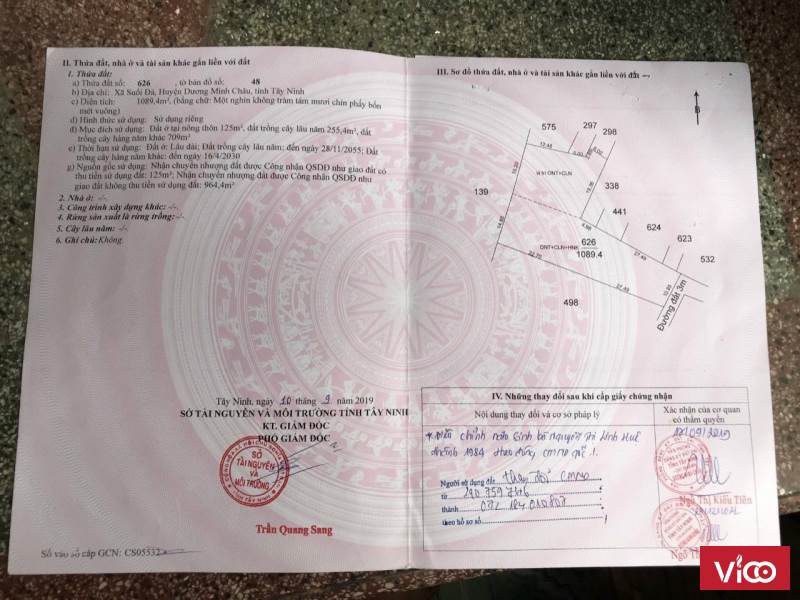 II. Thửa đất, nhà ở và tài sản khác gắn liền với đất
1. Thửa đất:
a) Thửa đất số: 626 , tờ bản đồ số: 48
b) Địa chỉ: Xã Suối Đá, Huyện Dương Minh Châu, tỉnh Tây Ninh
c) Diện tích: 1089,4m², (bằng chữ: Một nghìn không trăm tám mươi chín phẩy bốn
mét vuông)
d) Hình thức sử dụng: Sử dụng riêng
đ) Mục đích sử dụng: Đất ở tại nông thôn 125m², đất trồng cây lâu năm 255,4m², đất
trồng cây hàng năm khác 709m²
e) Thời hạn sử dụng: Đất ở: Lâu dài; Đất trồng cây lâu năm: đến ngày 28/11/2055; Đất
trồng cây hàng năm khác: đến ngày 16/4/2030
g) Nguồn gốc sử dụng: Nhận chuyển nhượng đất được Công nhận QSDĐ như giao đất có
thu tiền sử dụng đất: 125m²; Nhận chuyển nhượng đất được Công nhận QSDĐ như
giao đất không thu tiền sử dụng đất: 964,4m²
2. Nhà ở: -/-
3. Công trình xây dựng khác: -/-
4. Rừng sản xuất là rừng trồng: -/-
5. Cây lâu năm: -/-
6. Ghi chú: Không
Tây Ninh, ngày 10 tháng 9 năm 2019
SỞ TÀI NGUYÊN VÀ MÔI TRƯỜNG TỈNH TÂY NINH
KT. GIÁM ĐỐC
PHÓ GIÁM ĐỐC
SỞ
TÀI NGUYÊN
VÀ
MÔI TRƯỜNG
Trần Quang Sang
Số vào sổ cấp GCN: CS05532
III. Sơ đồ thửa đất, nhà ở và tài sản khác gắn liền với đất
B
575
297
298
139
338
441
624
623
532
626
1089.4
ONT+CLN+HNK
498
Đường đất 3m
IV. Những thay đổi sau khi cấp giấy chứng nhận
Nội dung thay đổi và cơ sở pháp lý
Xác nhận của cơ quan
có thẩm quyền
Người sử dụng đất thay đổi CMND
từ 290 759
thành
theo hồ sơ số
Ngô Thị Kiều Tiên
Ngô Th
Vico